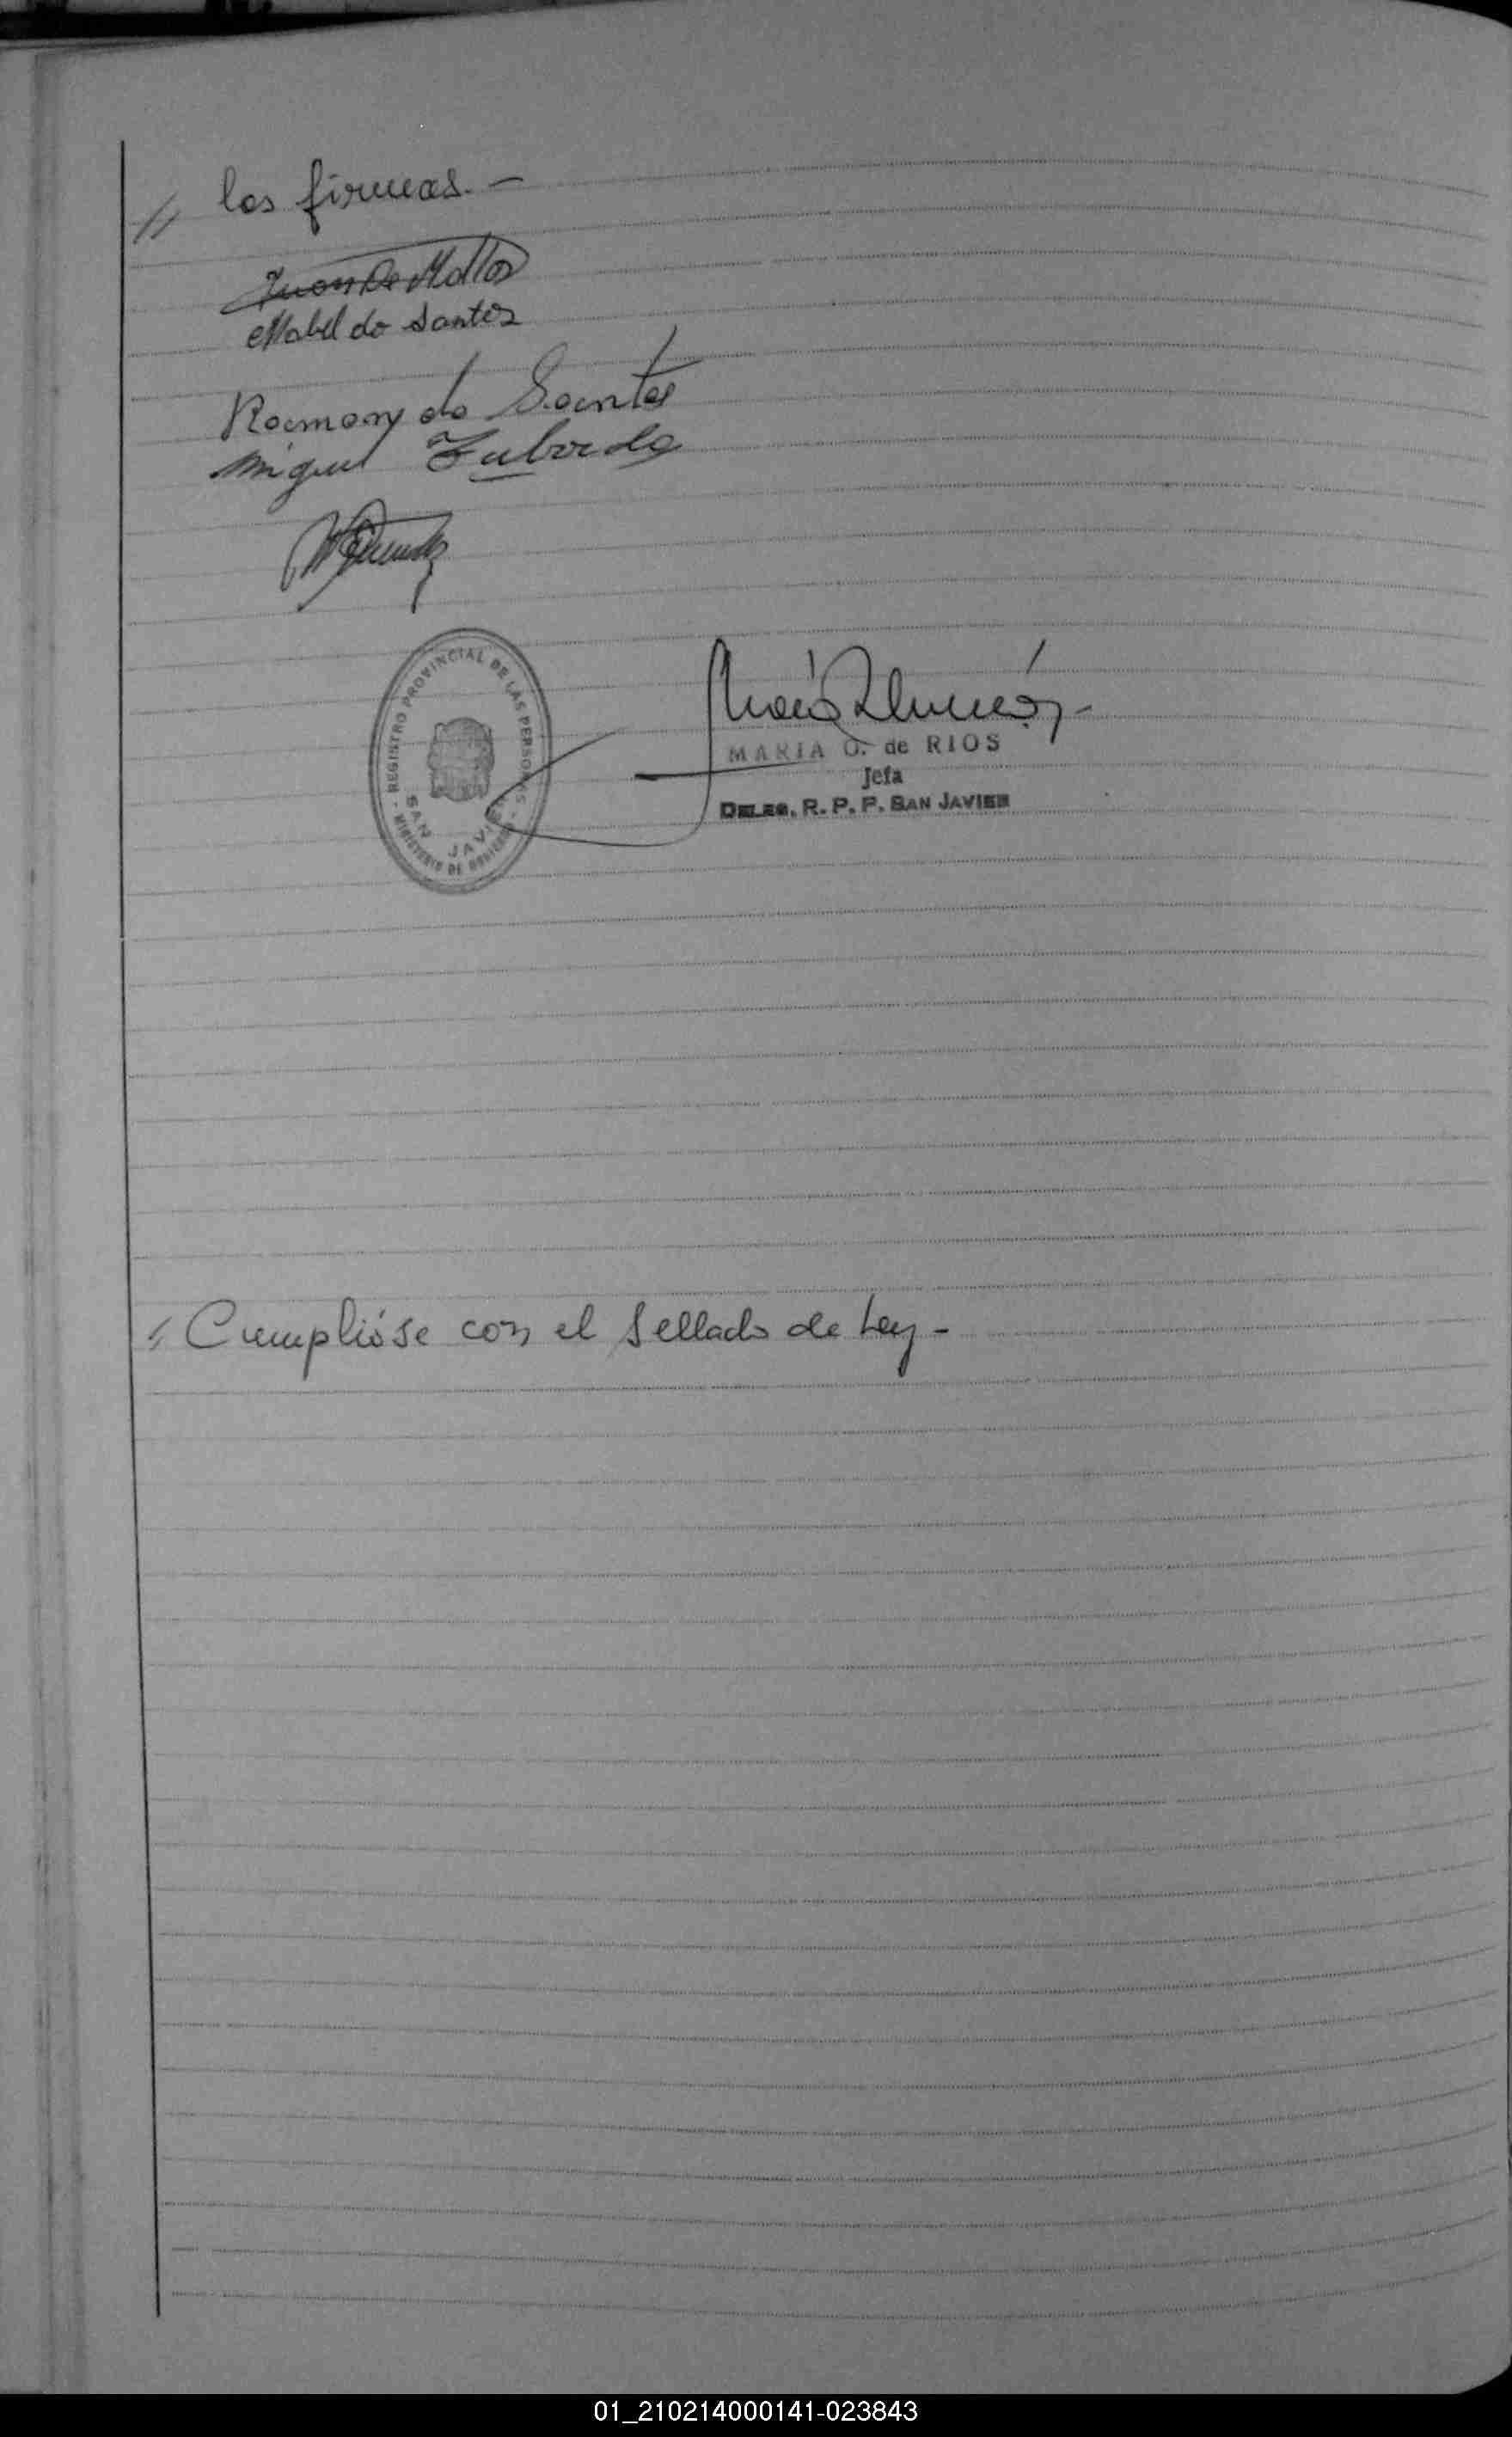 // las firmas. -
Juan De Mattos
Mabel do Santos
Ramon do Santos
Miguel
- REGISTRO PROVINCIAL DE LAS PERSONAS -
MINISTERIO DE GOBIERNO
SAN JAVIER
MARIA O. de RIOS
Jefa
DELEG. R. P. P. SAN JAVIER
// Cumplióse con el Sellado de Ley -
01_210214000141-023843